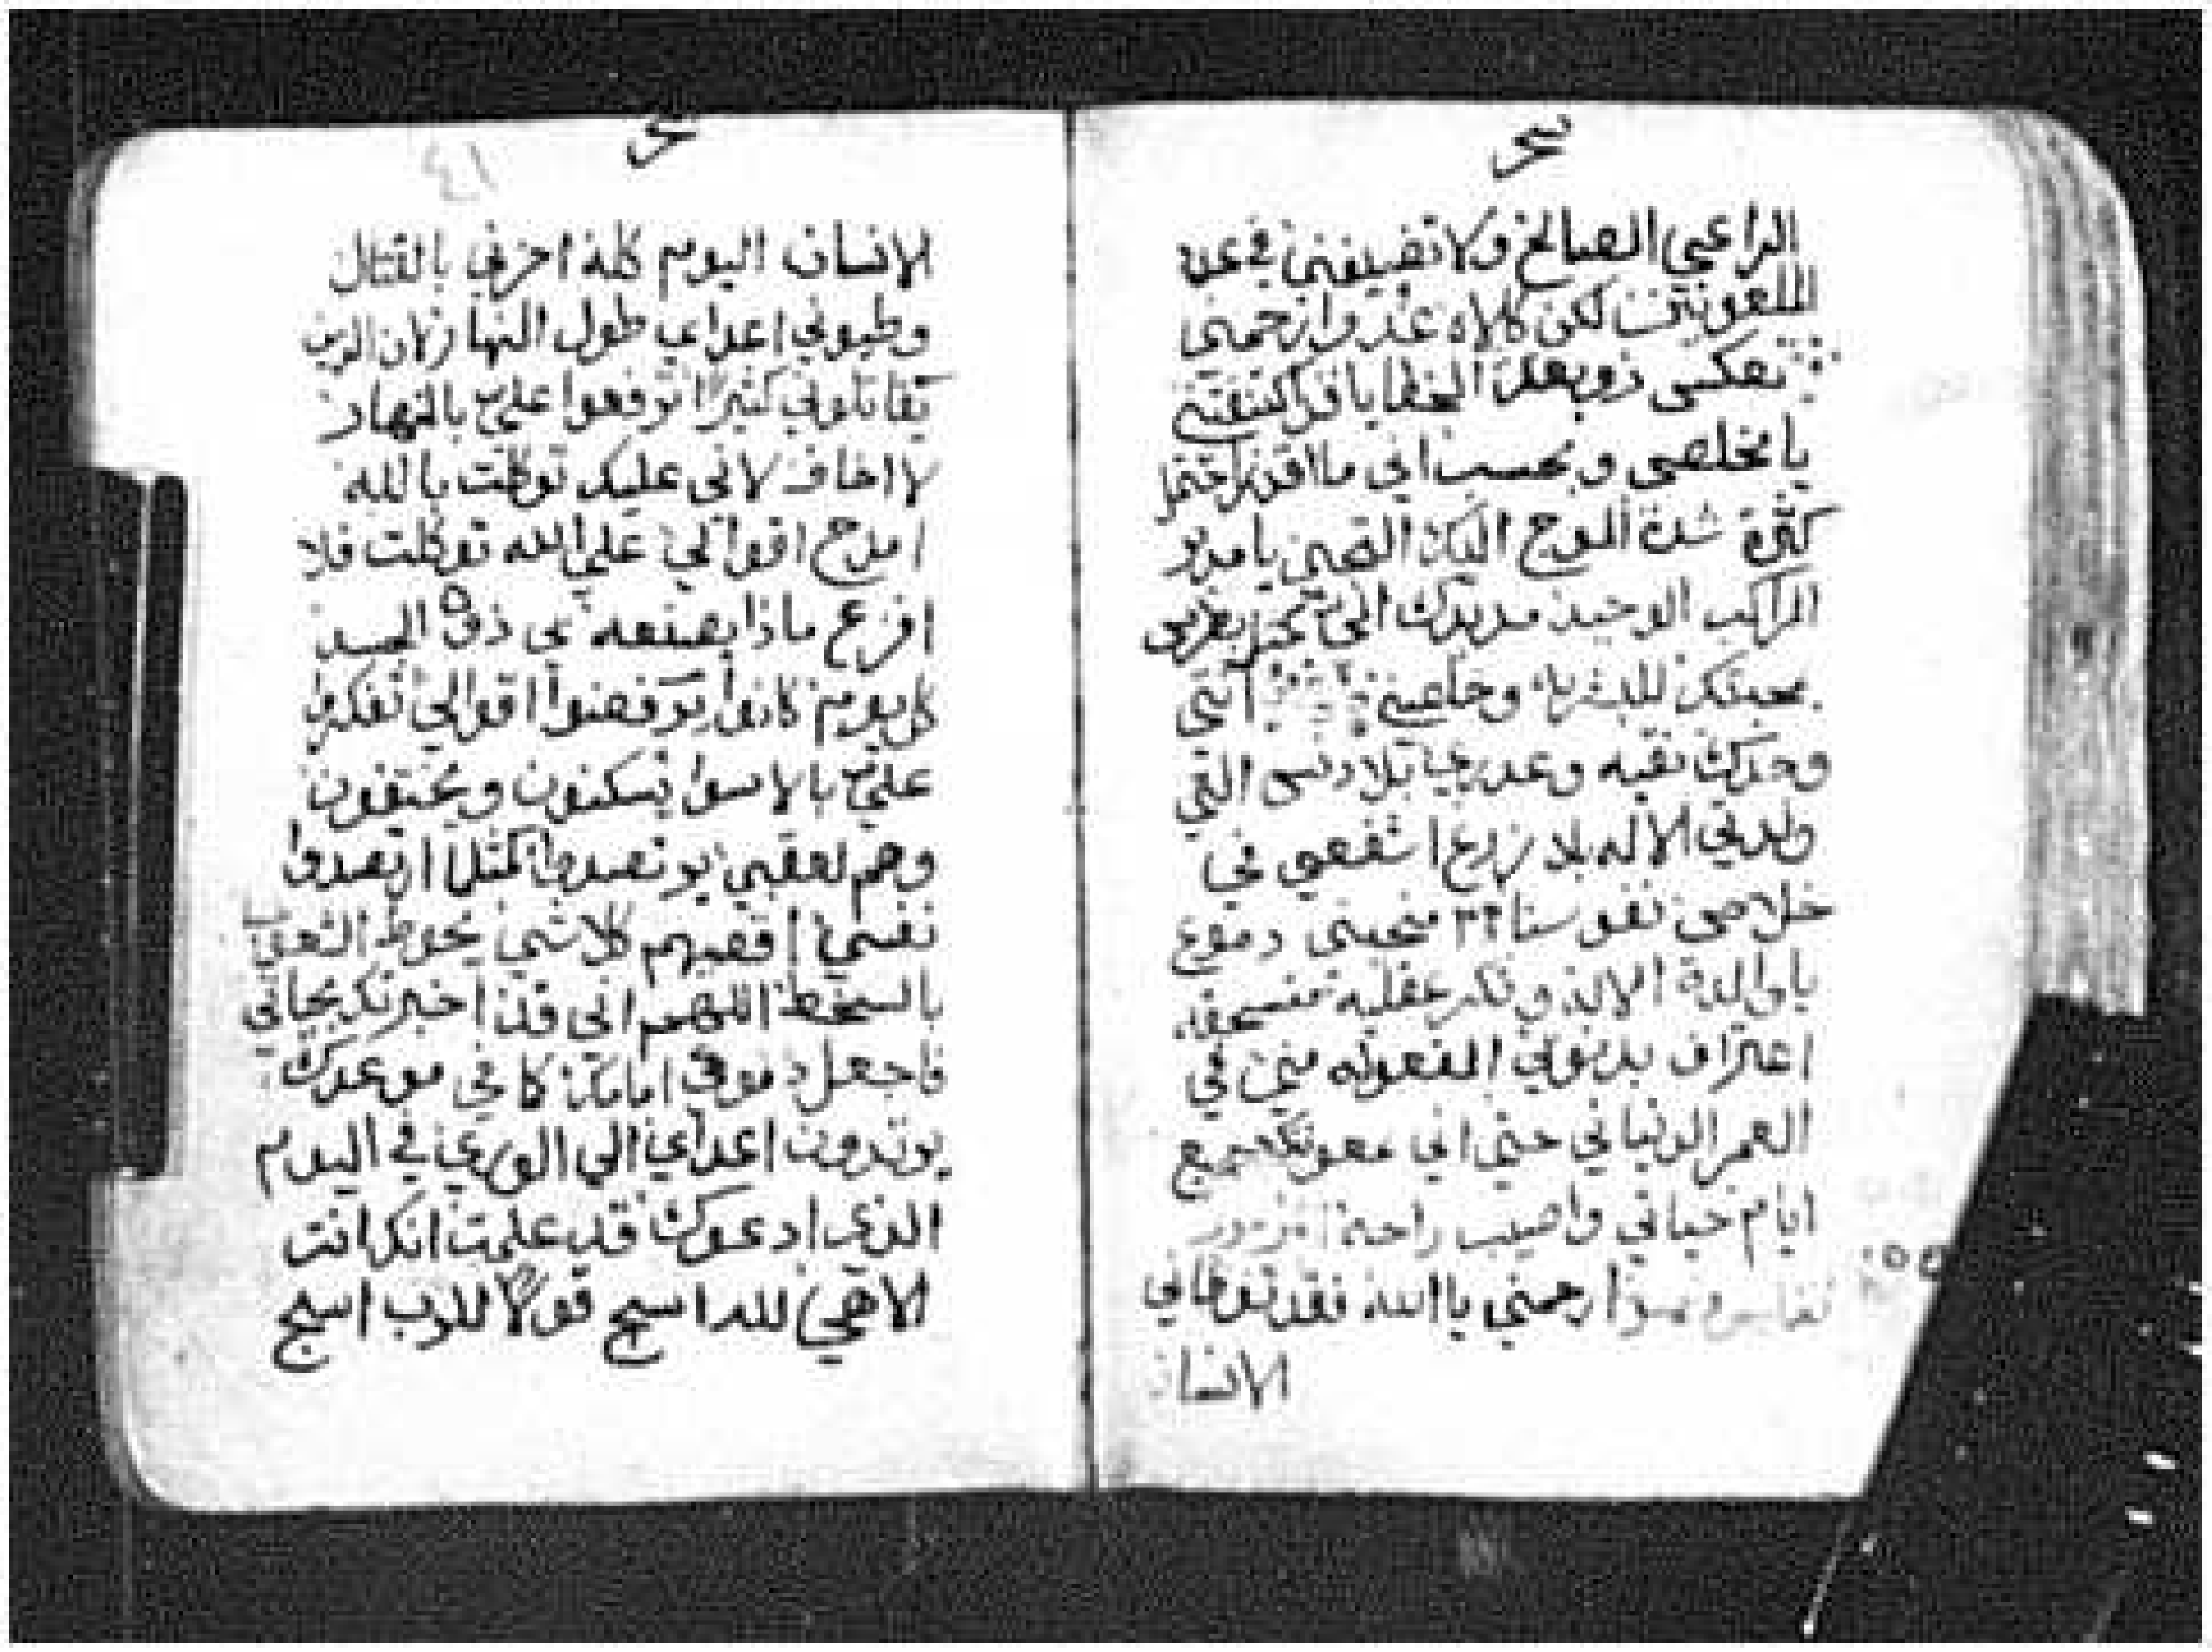 الراعي الصالح ولا تضيفني في عدد
الملعونين لكن كالاه عد وارحمني
تعكسي زوبعة الخطايا قد اكتنفتني
يا مخلصي وبحسب اني ما اقدر احتمل
كثرة شدة الموج اليك التجي يا مدبر
المراكب الوحيد مد يدك الي
بمحبتك للبشر وخلصني انتي
وحدك نقيه وعدرا بلا دنس التي
ولدتي الاله بلا زرع اشفعي في
خلاص نفوسنا امنحيني دموع
يا والدة الاله وفكر عقليه منسحقه
اعتراف بدنوبي المفعوله مني في
العمر الدنياني حتي اني معونتك جميع
ايام حياتي واصيب راحة
ارحمني يا الله فقد توطاني
الانسان
٤١
الانسان اليوم كله احزنني بالقتال
وطيوني اعداي طول النهار لان الدين
يقاتلوني كثيرا اترفعوا علي بالنهار
لا اخاف لاني عليك توكلت بالله
امدح اقوالي علي الله توكلت فلا
افزع ماذا يصنعه بي ذو الجسد
كل يوم كانوا يرفضوا اقوالي تفكروا
علي بالاسوا يسكنون ويختفون
وهم لعقبي يرتصدوا كمثلما ارتصدوا
نفسي اقصيهم كلا شي تحوط الشعوب
بالسخط اللهم اني قد اخبرتك بحياتي
فاجعل دموعي امامك كما في موعدك
يرتدون اعداي الي الوري في اليوم
الذي ادعوك قد علمت انك انت
الاهي لله اسبح قولا للرب اسبح